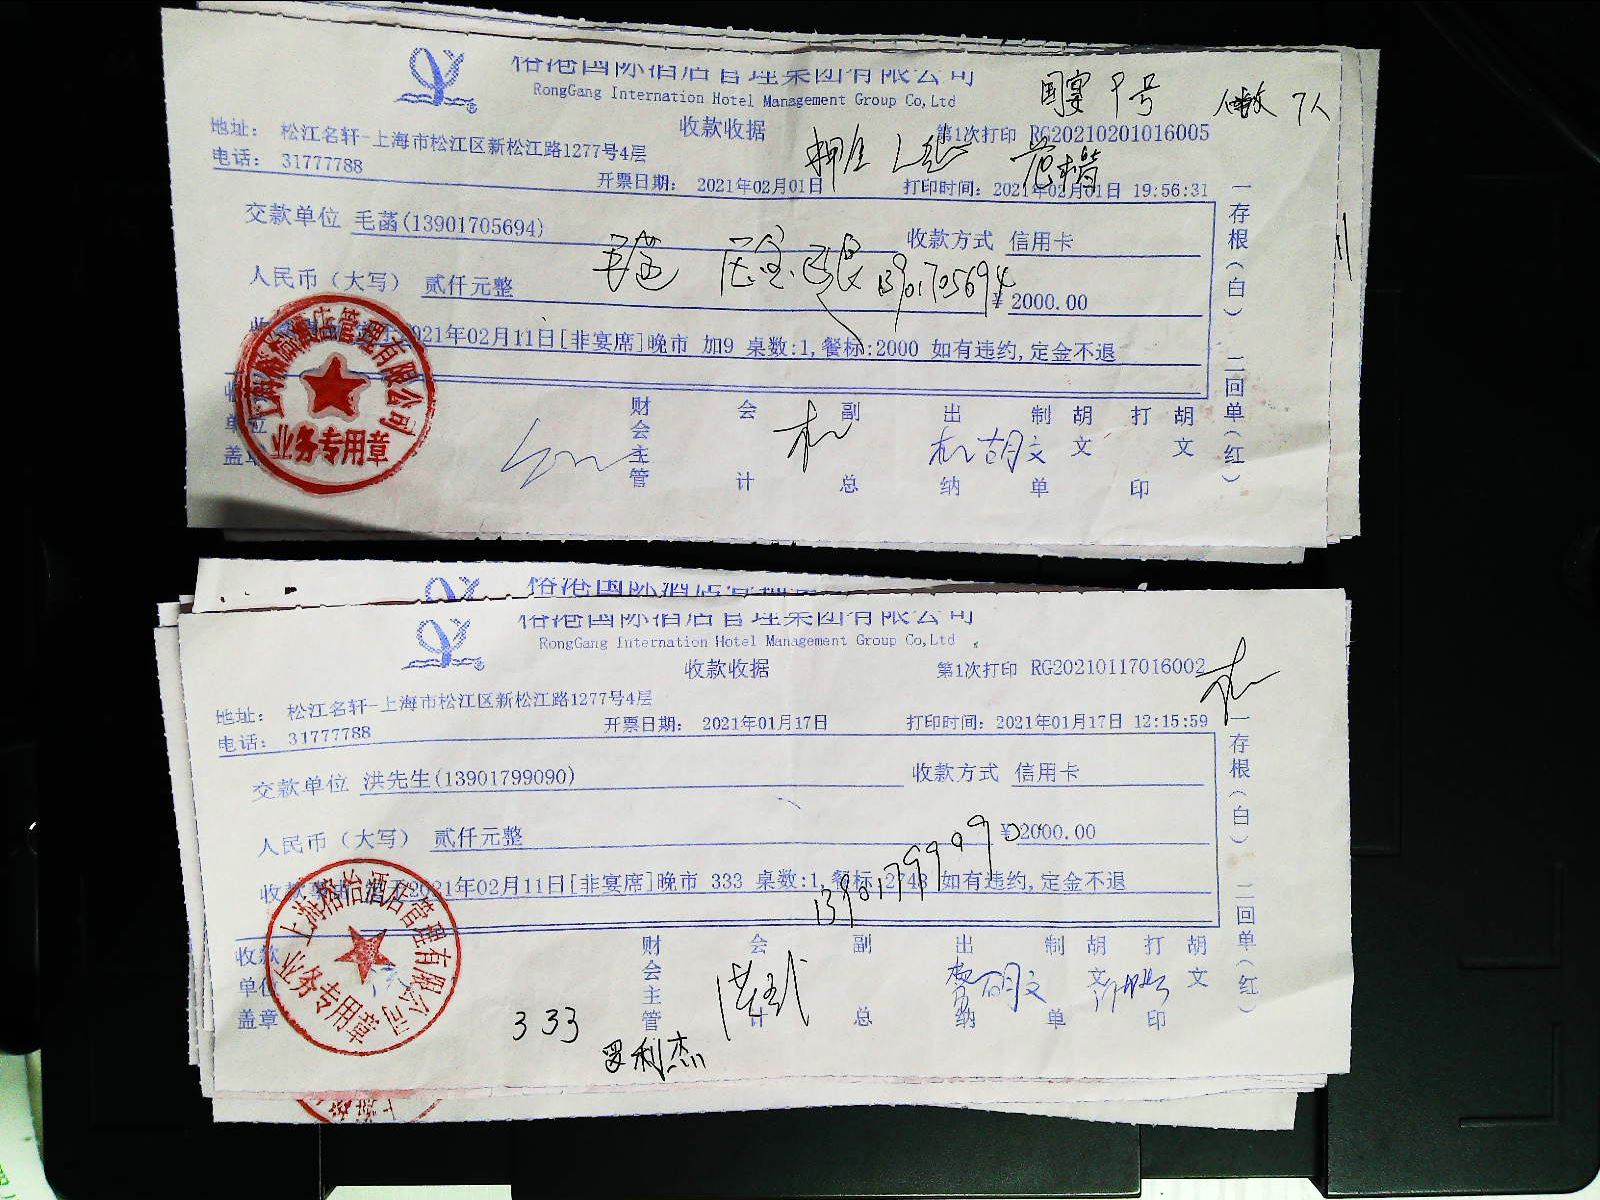 国际酒店管理集团有限公司
RongGang Internation Hotel Management Group Co,Ltd
国宴 9号
7人
收款收据
第1次打印 RG20210201016005
地址： 松江名轩-上海市松江区新松江路1277号4层
押金
电话： 31777788
开票日期： 2021年02月01日
打印时间：2021年02月01日 19:56:31
交款单位 毛菡(13901705694)
收款方式 信用卡
13901705694
人民币（大写） 贰仟元整
¥ 2000.00
2021年02月11日[非宴席]晚市 加9 桌数:1,餐标:2000 如有违约,定金不退
一存根(白) 二回单(红)
酒店管理有限公司
业务专用章
财会主管 会计 副总 出纳 制单 胡文 打印 胡文
胡文
国际酒店管理集团有限公司
RongGang Internation Hotel Management Group Co,Ltd
收款收据
第1次打印 RG20210117016002
地址： 松江名轩-上海市松江区新松江路1277号4层
电话： 31777788
开票日期： 2021年01月17日
打印时间：2021年01月17日 12:15:59
交款单位 洪先生(13901799090)
收款方式 信用卡
人民币（大写） 贰仟元整
¥2000.00
2021年02月11日[非宴席]晚市 333 桌数:1,餐标:2748 如有违约,定金不退
一存根(白) 二回单(红)
收款单位盖章
酒店管理有限公司
业务专用章
财会主管 会计 副总 出纳 制单 胡文 打印 胡文
胡文
333
罗利杰